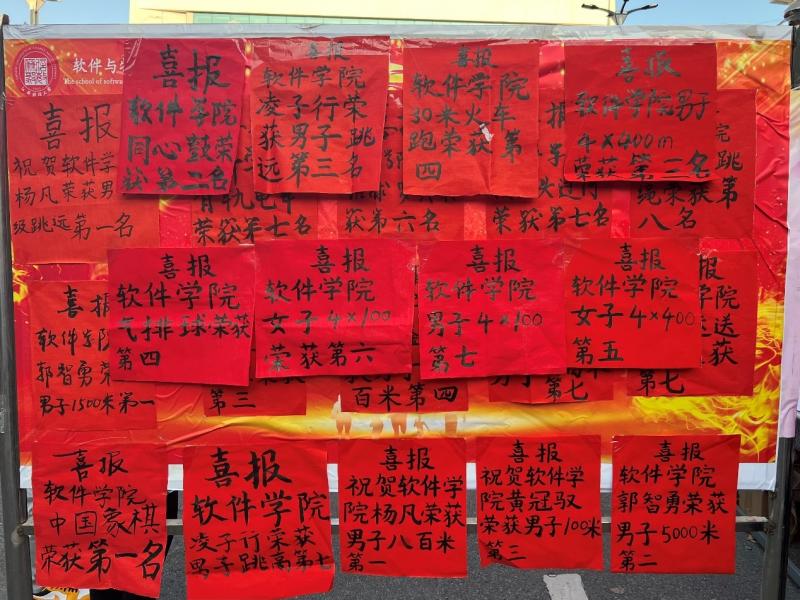 软件与
The school of softwa
喜报
祝贺软件学
杨凡荣获男
级跳远第一名
喜报
软件学院
同心鼓荣
获第二名
喜报
软件学院
凌子行荣
获男子跳
远第三名
喜报
软件学院
30米火车
跑荣获第
四
喜报
软件学院男子
4×400m
荣获第二名
荣获第七名
获第六名
荣获第七名
跳
绳荣获第
八名
喜报
软件学院
郭智勇荣
男子1500米第一
喜报
软件学院
气排球荣获
第四
喜报
软件学院
女子4×100
荣获第六
喜报
软件学院
男子4×100
第七
喜报
软件学院
女子4×400
第五
报
学院
送
获
第三
百米第四
第七
第七
喜报
软件学院
中国象棋
荣获第一名
喜报
软件学院
凌子行荣获
男子跳高第七
喜报
祝贺软件学
院杨凡荣获
男子八百米
第一
喜报
祝贺软件学
院黄冠驭
荣获男子100米
第三
喜报
软件学院
郭智勇荣获
男子5000米
第二